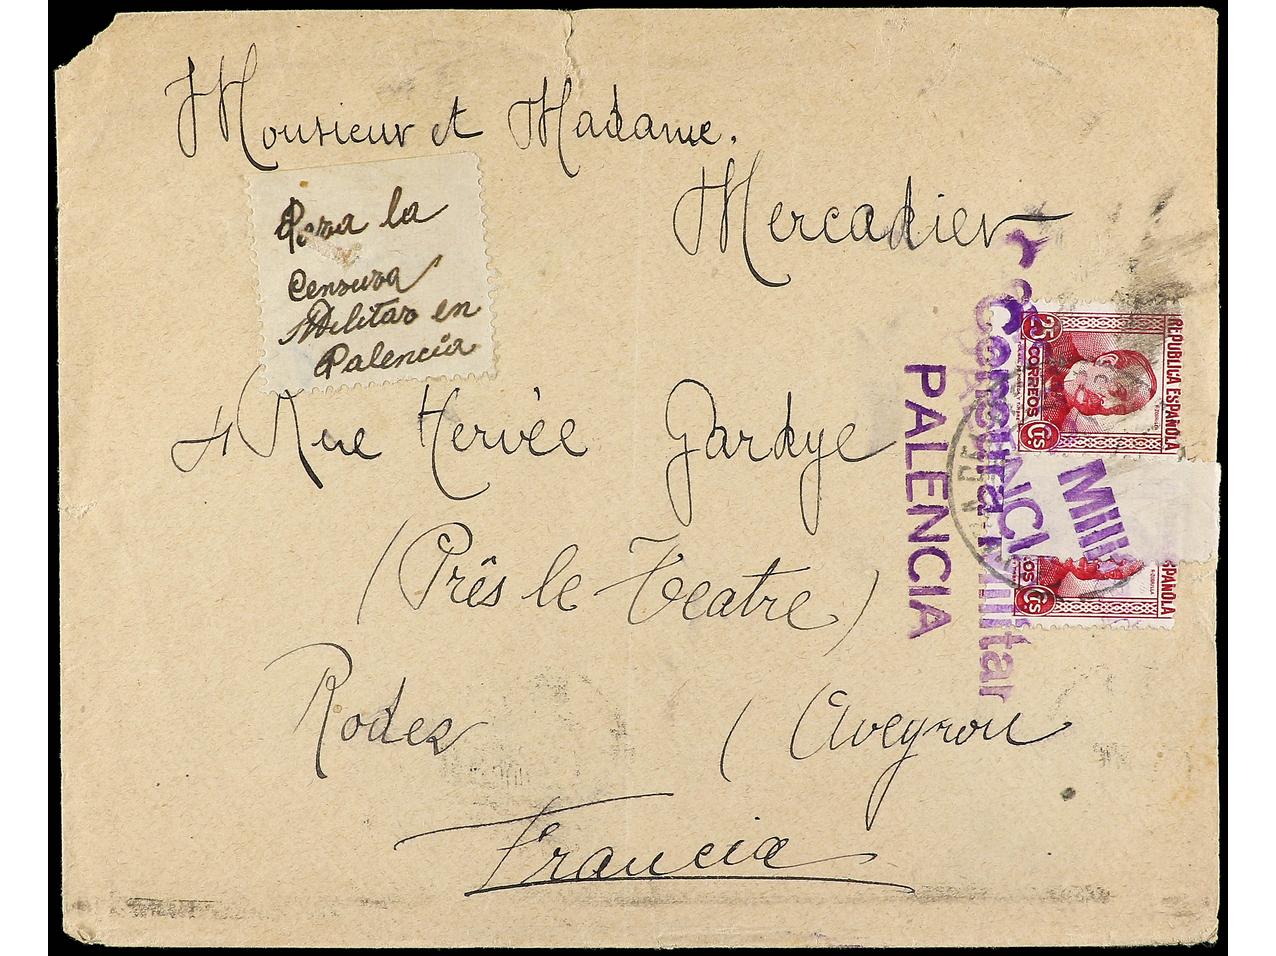 Monsieur et Madame.
Mercadier
Para la
Censura
Militar en
Palencia
4 Rue Hervée Gardye
(Près le Teatre)
Rodez (Aveyron
Francia
Censura Militar
PALENCIA
Milit
ENCI
25 CORREOS Cts
REPUBLICA ESPAÑOLA
EOS Cts
ESPAÑOLA